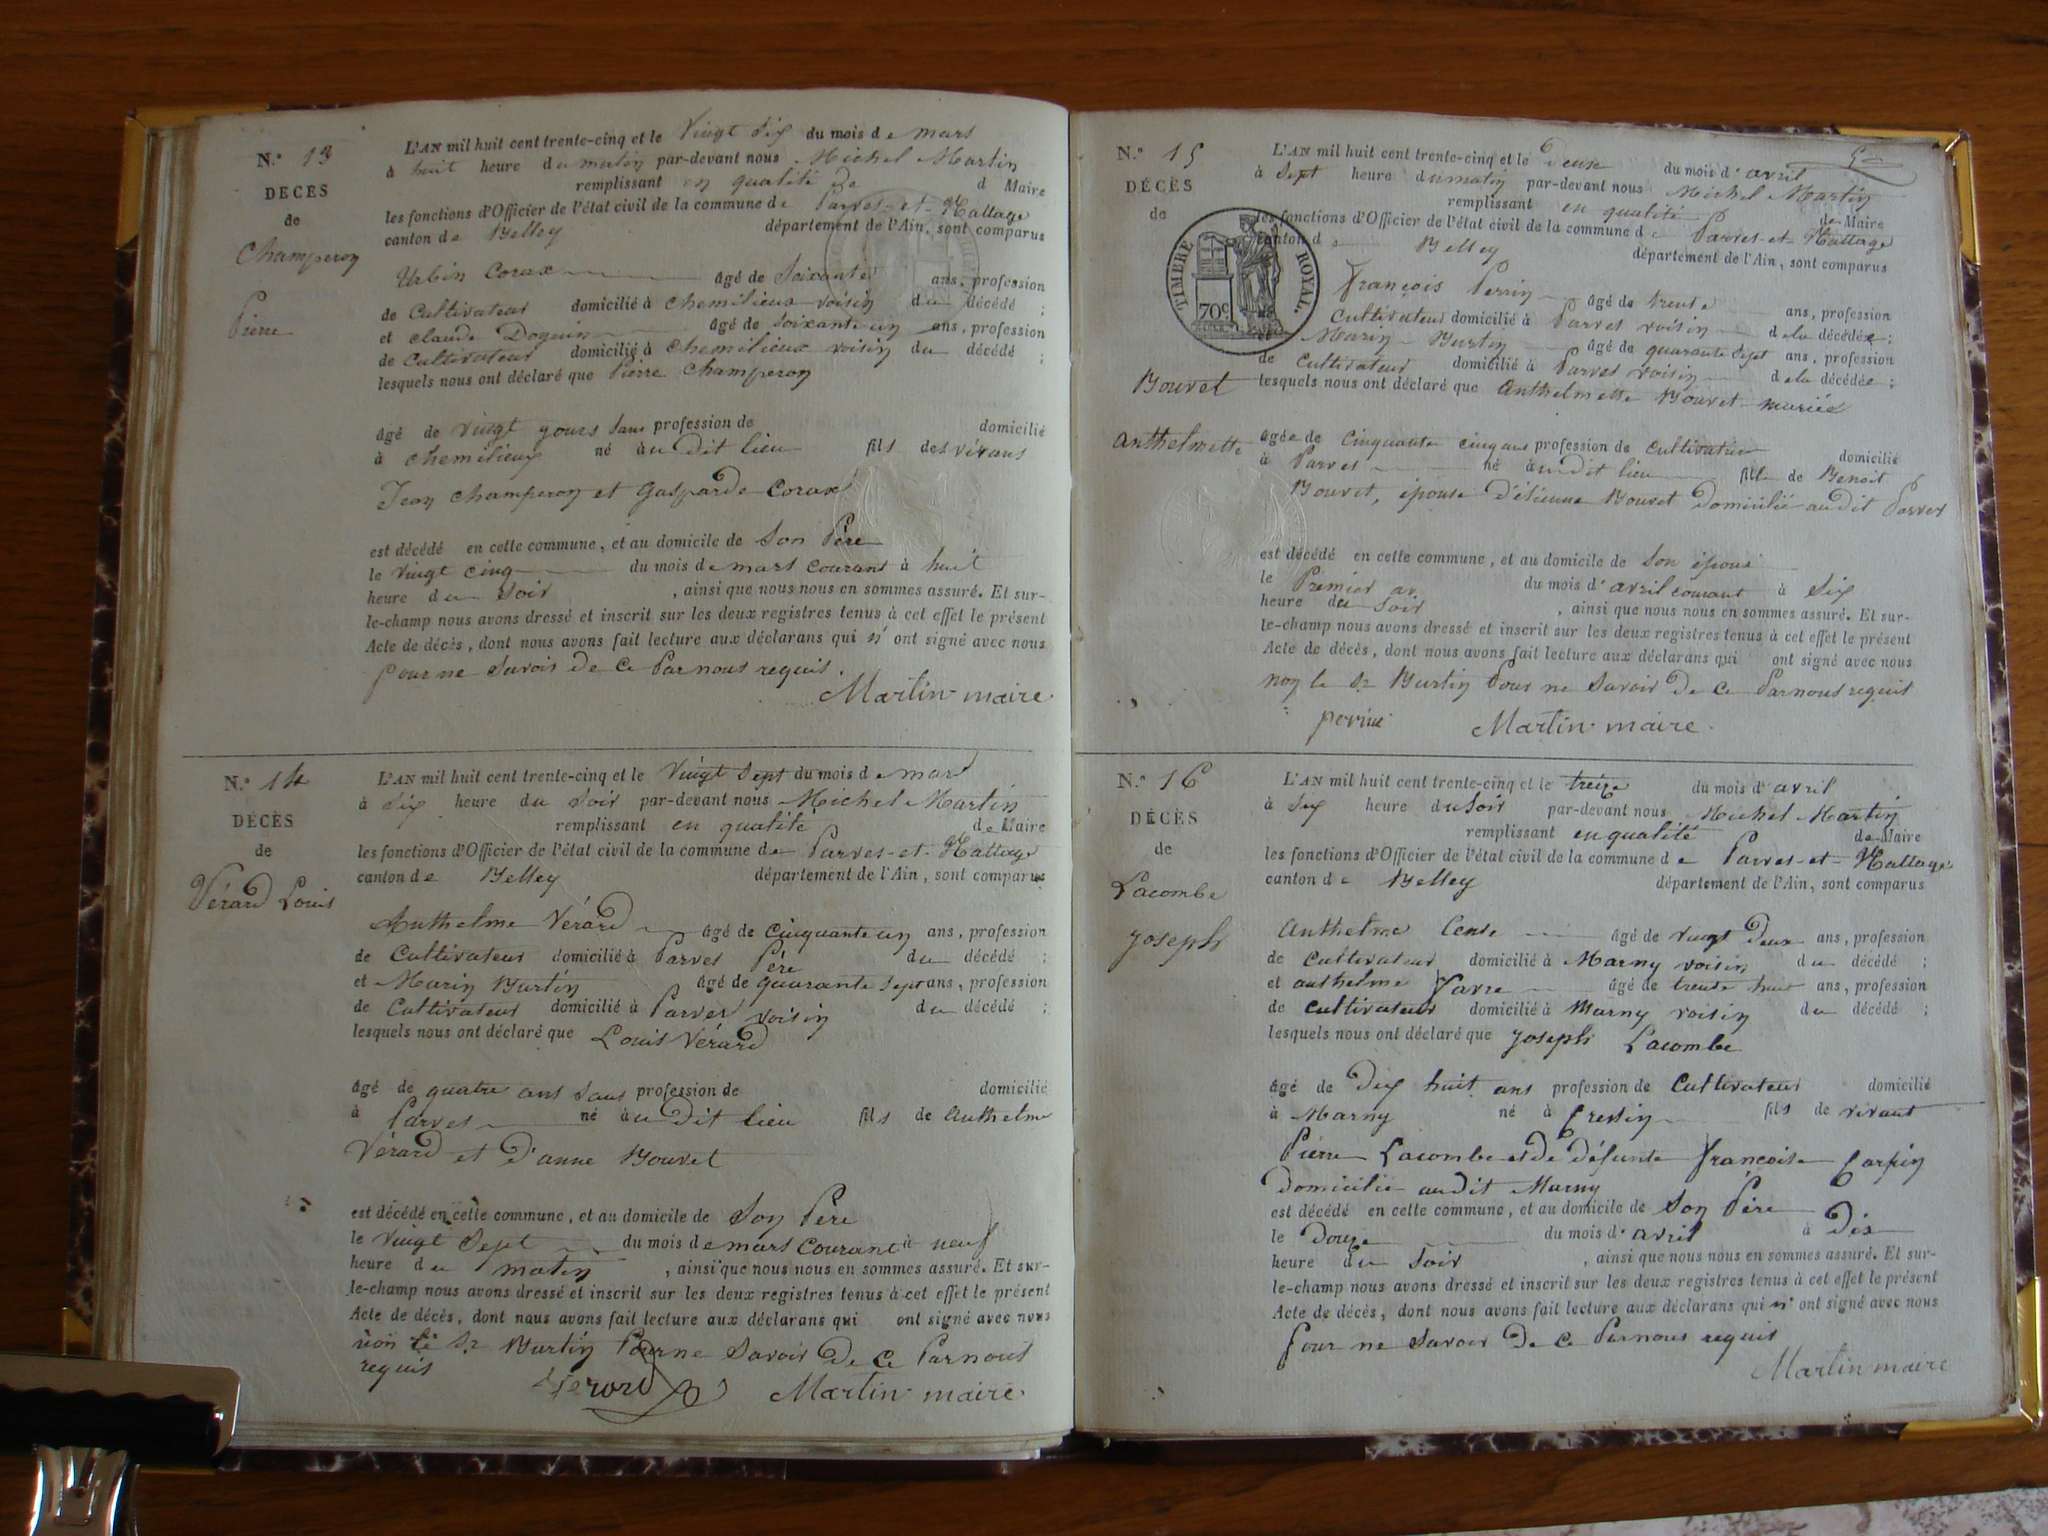 N.° 13
DECES
de
Champeron
Pierre
L'AN mil huit cent trente-cinq et le Vingt Six du mois de mars
à huit heure du matin par-devant nous Michel Martin
remplissant en qualité de d Maire
les fonctions d'Officier de l'état civil de la commune de Parves-et-Nattage
canton de Belley département de l'Ain, sont comparus
Urbin Corax âgé de Soixante ans, profession
de Cultivateur domicilié à Chemilieux voisin du décédé ;
et claude Doguin âgé de soixante un ans, profession
de Cultivateur domicilié à Chemilieux voisin du décédé ;
lesquels nous ont déclaré que Pierre Champeron
âgé de vingt jours Sans profession de domicilié
à Chemilieux né àu Dit lieu fils des vivans
Jean Champeron et Gasparde Corax
est décédé en cette commune, et au domicile de Son Père
le vingt cinq du mois de mars courant à huit
heure du Soir , ainsi que nous nous en sommes assuré. Et sur-
le-champ nous avons dressé et inscrit sur les deux registres tenus à cet effet le présent
Acte de décès, dont nous avons fait lecture aux déclarans qui n' ont signé avec nous
pour ne Savoir de ce Par nous requis.
Martin maire
N.° 14
DÉCÈS
de
Vérard Louis
L'AN mil huit cent trente-cinq et le Vingt Sept du mois de mars
à Six heure du Soir par-devant nous Michel Martin
remplissant en qualité de Maire
les fonctions d'Officier de l'état civil de la commune de Parves-et-Nattage
canton de Belley département de l'Ain, sont comparus
Anthelme Vérard âgé de Cinquante un ans, profession
de Cultivateur domicilié à Parves Père du décédé ;
et Marin Burtin âgé de quarante Sept ans, profession
de Cultivateur domicilié à Parves voisin du décédé ;
lesquels nous ont déclaré que Louis Vérard
âgé de quatre ans Sans profession de domicilié
à Parves né àu Dit lieu fils de Anthelme
Vérard et D'anne Bouvet
est décédé en cette commune, et au domicile de Son Père
le vingt Sept du mois de mars Courant à neuf
heure du matin , ainsi que nous nous en sommes assuré. Et sur-
le-champ nous avons dressé et inscrit sur les deux registres tenus à cet effet le présent
Acte de décès, dont nous avons fait lecture aux déclarans qui ont signé avec nous
non le Sr Burtin Pour ne Savoir De Ce Par nous
requis
Verard Martin maire
N.° 15
DÉCÈS
de
Bouvet
Anthelmette
TIMBRE ROYAL
70c
L'AN mil huit cent trente-cinq et le Deux du mois d'avril
à Sept heure du matin par-devant nous Michel Martin
remplissant en qualité de Maire
les fonctions d'Officier de l'état civil de la commune de Parves-et-Nattage
canton de Belley département de l'Ain, sont comparus
françois Perrin âgé de trente ans, profession
Cultivateur domicilié à Parves voisin de la décédée ;
Marin Burtin âgé de quarante Sept ans, profession
de Cultivateur domicilié à Parves voisin de la décédée ;
lesquels nous ont déclaré que Anthelmette Bouvet mariée
âgée de Cinquante cinq ans profession de Cultivatrice domicilié
à Parves né àu Dit lieu fille de Benoit
Bouvet, épouse D'étienne Bouvet Domicilié au dit Parves
est décédé en cette commune, et au domicile de Son époux
le Premier du mois d'avril courant à Six
heure du Soir , ainsi que nous nous en sommes assuré. Et sur-
le-champ nous avons dressé et inscrit sur les deux registres tenus à cet effet le présent
Acte de décès, dont nous avons fait lecture aux déclarans qui ont signé avec nous
non le Sr Burtin Pour ne Savoir De Ce Par nous requis
Martin maire.
N.° 16
DÉCÈS
de
Lacombe
Joseph
L'AN mil huit cent trente-cinq et le treize du mois d'avril
à Six heure du Soir par-devant nous Michel Martin
remplissant en qualité de Maire
les fonctions d'Officier de l'état civil de la commune de Parves-et-Nattage
canton de Belley département de l'Ain, sont comparus
Anthelme âgé de vingt Deux ans, profession
de Cultivateur domicilié à Marny voisin du décédé ;
et anthelme favre âgé de trente huit ans, profession
de cultivateur domicilié à Marny voisin du décédé ;
lesquels nous ont déclaré que Joseph Lacombe
âgé de Dix huit ans profession de Cultivateur domicilié
à Marny né à Cressin fils de vivant
Pierre Lacombe et De Défunte françoise Carpin
Domicilié audit Marny
est décédé en cette commune, et au domicile de Son Père
le Douze du mois d'avril à Dix
heure du Soir , ainsi que nous nous en sommes assuré. Et sur-
le-champ nous avons dressé et inscrit sur les deux registres tenus à cet effet le présent
Acte de décès, dont nous avons fait lecture aux déclarans qui n' ont signé avec nous
Pour ne Savoir De Ce Par nous requis
Martin maire